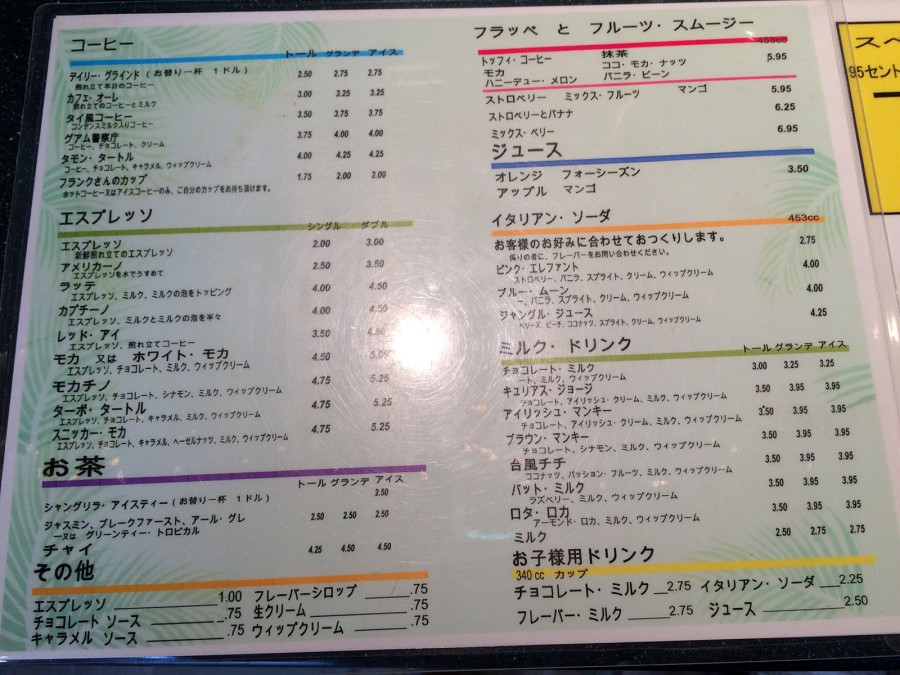 コーヒー
トール グランデ アイス
デイリー・グラインド (お替り一杯 1ドル) 2.50 2.75 2.75
煎れ立て本日のコーヒー
カフェ・オーレ 3.00 3.25 3.25
煎れ立てのコーヒーとミルク
タイ風コーヒー 3.50 3.75 3.75
コンデンスミルク入りコーヒー
グアム警察庁 3.75 4.00 4.00
コーヒー、チョコレート、クリーム
タモン・タートル 4.00 4.25 4.25
コーヒー、チョコレート、キャラメル、ウィップクリーム
フランクさんのカップ 1.75 2.00 2.00
ホットコーヒー又はアイスコーヒーのみ、ご自分のカップをお持ち頂けます。
エスプレッソ
シングル ダブル
エスプレッソ 2.00 3.00
新鮮煎れ立てのエスプレッソ
アメリカーノ 2.50 3.50
エスプレッソを水でうすめて
ラッテ 4.00 4.50
エスプレッソ、ミルク、ミルクの泡をトッピング
カプチーノ 4.00 4.50
エスプレッソ、ミルクとミルクの泡を半々
レッド・アイ 3.50
エスプレッソ、煎れ立てコーヒー
モカ 又は ホワイト・モカ 4.50 5.00
エスプレッソ、チョコレート、ミルク、ウィップクリーム
モカチノ 4.75 5.25
エスプレッソ、チョコレート、シナモン、ミルク、ウィップクリーム
ターボ・タートル 4.75 5.25
エスプレッソ、チョコレート、キャラメル、ミルク、ウィップクリーム
スニッカー・モカ 4.75 5.25
エスプレッソ、チョコレート、キャラメル、ヘーゼルナッツ、ミルク、ウィップクリーム
お茶
トール グランデ アイス
シャングリラ・アイスティー (お替り一杯 1ドル) 2.50
ジャスミン、ブレークファースト、アール・グレ 2.50 2.50 2.50
ー又は グリーンティー・トロピカル
チャイ 4.25 4.50 4.50
その他
エスプレッソ 1.00 フレーバーシロップ .75
チョコレート ソース .75 生クリーム .75
キャラメル ソース .75 ウィップクリーム .75
フラッペ と フルーツ・スムージー
453cc
トッフィ・コーヒー 抹茶 5.95
モカ ココ・モカ・ナッツ
ハニーデュー・メロン バニラ・ビーン
ストロベリー ミックス・フルーツ マンゴ 5.95
ストロベリーとバナナ 6.25
ミックス・ベリー 6.95
ジュース
オレンジ フォーシーズン 3.50
アップル マンゴ
イタリアン・ソーダ 453cc
お客様のお好みに合わせておつくりします。 2.75
係りの者に、フレーバーをお問い合わせください。
ピンク・エレファント 4.00
ストロベリー、バニラ、スプライト、クリーム、ウィップクリーム
ブルー・ムーン 4.00
ー、バニラ、スプライト、クリーム、ウィップクリーム
ジャングル・ジュース 4.25
ベリーズ、ピーチ、ココナッツ、スプライト、クリーム、ウィップクリーム
ミルク・ドリンク
トール グランデ アイス
チョコレート・ミルク 3.00 3.25 3.25
ート、ミルク、ウィップクリーム
キュリアス・ジョージ 3.50 3.95 3.95
チョコレート、アイリッシュ・クリーム、ミルク、ウィップクリーム
アイリッシュ・マンキー 3.50 3.95 3.95
チョコレート、アイリッシュ・クリーム、ミルク、ウィップクリーム
ブラウン・マンキー 3.50 3.95 3.95
チョコレート、シナモン、ミルク、ウィップクリーム
台風チチ 3.50 3.95 3.95
ココナッツ、パッション・フルーツ、ミルク、ウィップクリーム
バット・ミルク 3.50 3.95 3.95
ラズベリー、ミルク、ウィップクリーム
ロタ・ロカ 3.50 3.95 3.95
アーモンド・ロカ、ミルク、ウィップクリーム
ミルク 2.50 2.75 2.75
お子様用ドリンク
340 cc カップ
チョコレート・ミルク 2.75 イタリアン・ソーダ 2.25
フレーバー・ミルク 2.75 ジュース 2.50
スペ
95セント